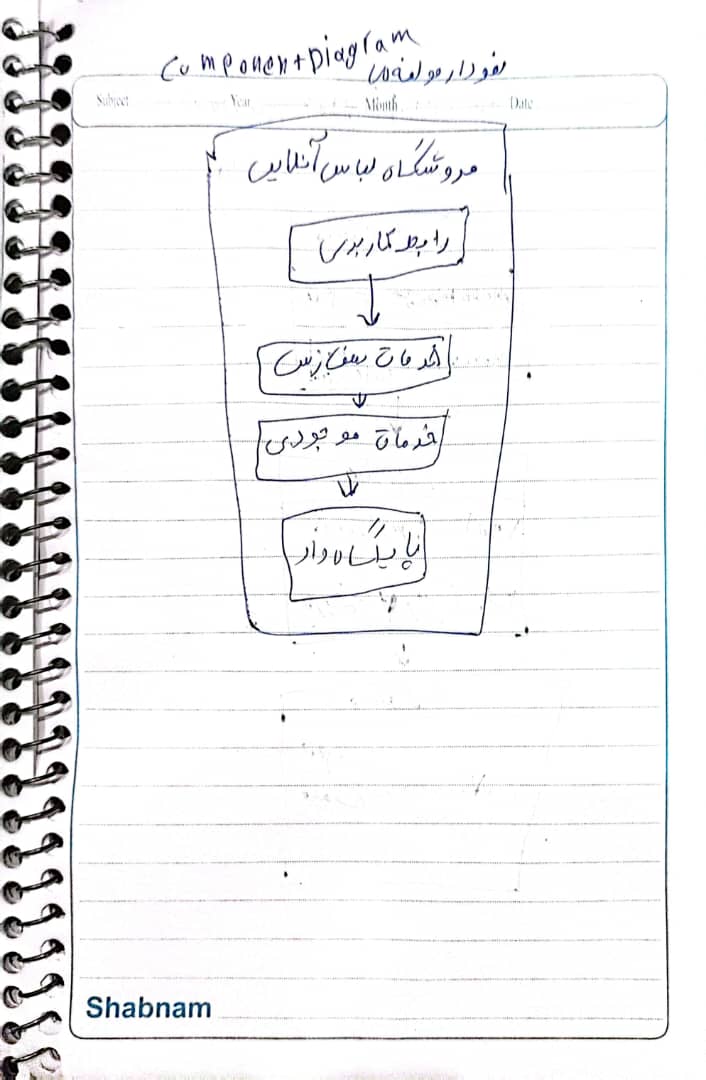 Component Diagram
نمودار مولفه ها
Subject Year Month Date
فروشگاه لباس آنلاین
رابط کاربری
خدمات سفارش
خدمات موجودی
پایگاه داد
Shabnam